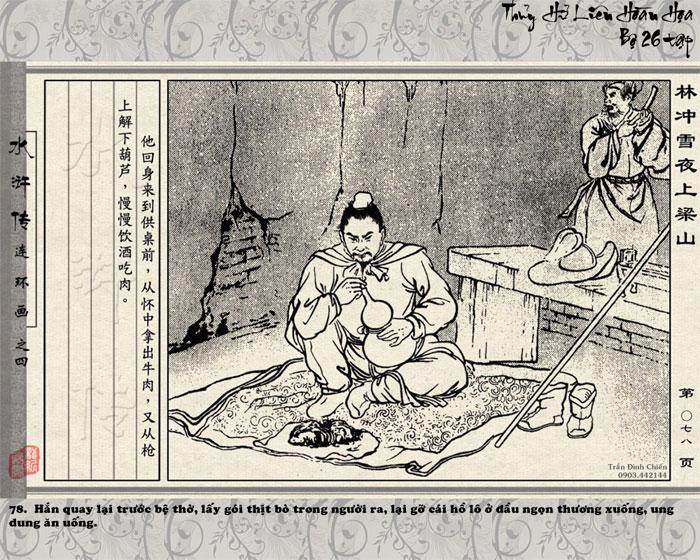 Thủy Hử Liên Hoàn Họa
Bộ 26 tập
林冲雪夜上梁山
第〇七八页
他回身来到供桌前，从怀中拿出牛肉，又从枪
上解下葫芦，慢慢饮酒吃肉。
水浒传连环画之四
Trần Đình Chiến
0903.442144
78. Hắn quay lại trước bệ thờ, lấy gói thịt bò trong người ra, lại gỡ cái hồ lô ở đầu ngọn thương xuống, ung
dung ăn uống.